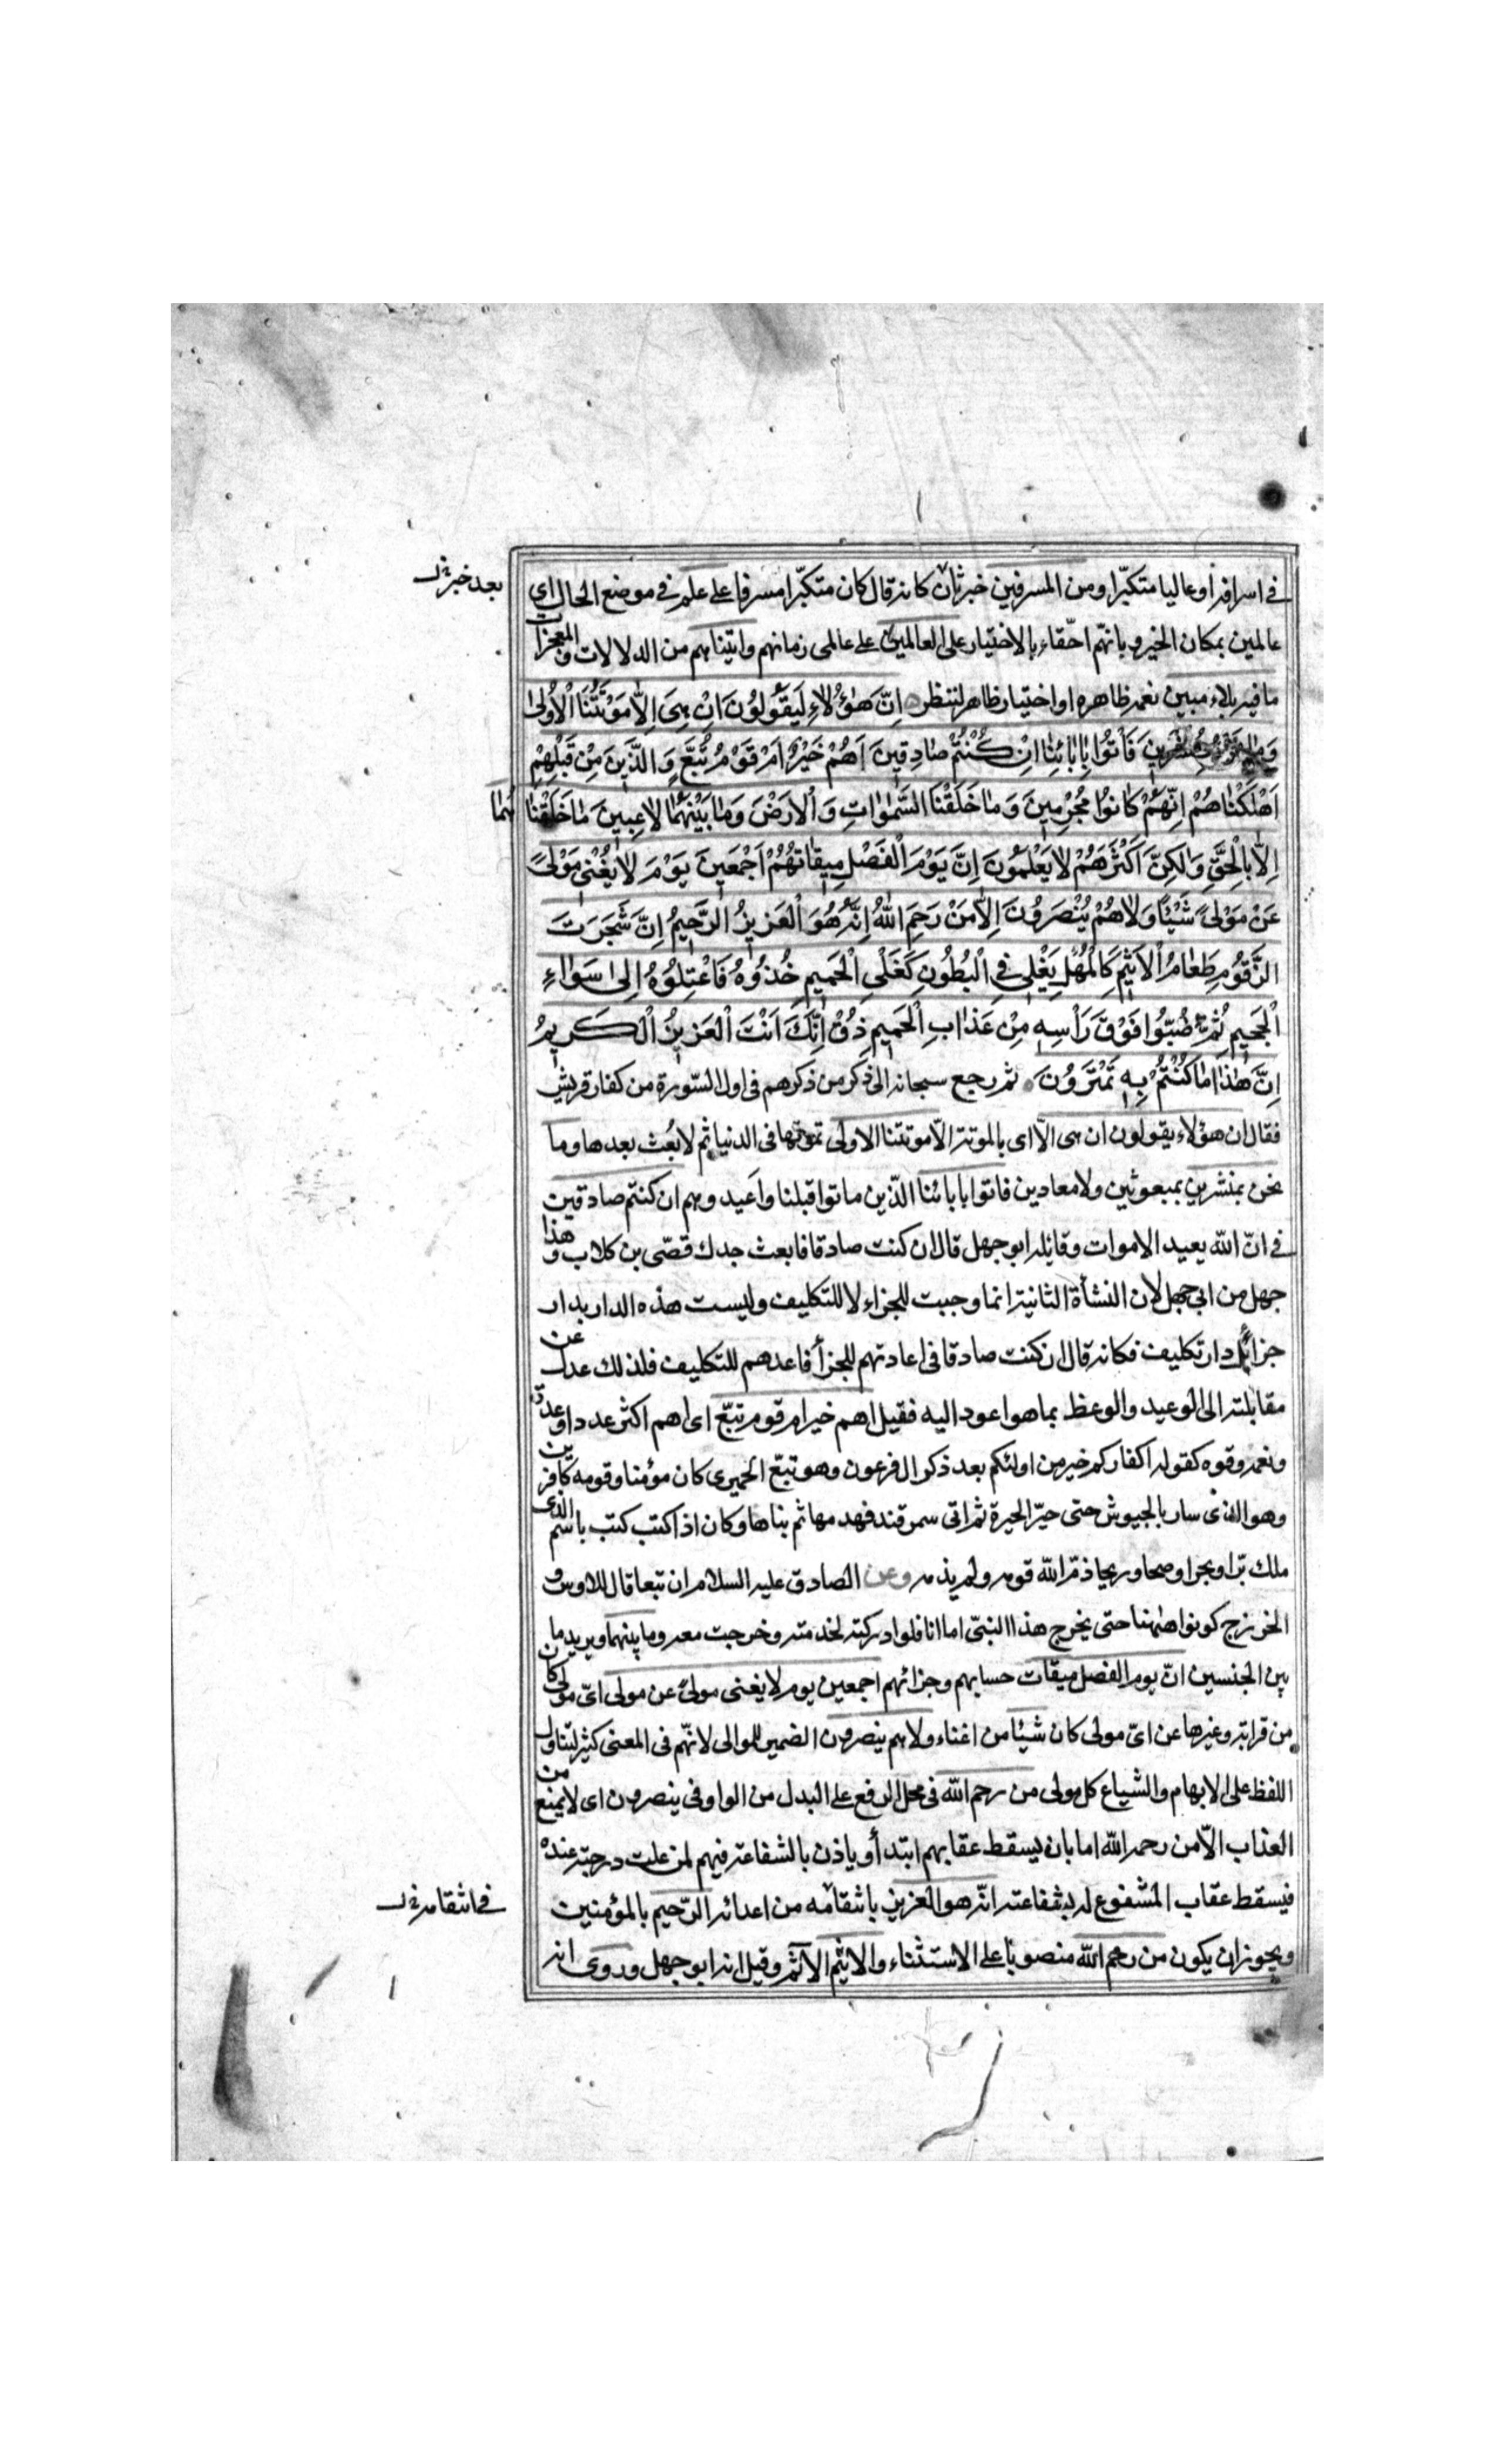 في اسرافه او عاليا متكبّرا ومن المسرفين خبر ثان كانه قال كان متكبّرا مسرفا على علم في موضع الحال اي
بعد خبر
عالمين بمكان الخير و بانهّم احّقاء بالاختيار على العالمين على عالمى زمانهم واتيناهم من الدلالات والمعجزات
ما فيه بلاء مبين نعمه ظاهره او اختيار ظاهر لننظر اِنَّ هٰؤُلاءِ لَيَقُولُونَ اِنْ هِىَ اِلّا مَوْتَتُنَا الْاُولىٰ
وَمٰا نَحْنُ بِمُنْشَرِينَ فَأْتُوا بِاٰبٰائِنٰا اِنْ كُنْتُمْ صٰادِقِينَ اَهُمْ خَيْرٌ اَمْ قَوْمُ تُبَّعٍ وَالَّذِينَ مِنْ قَبْلِهِمْ
اَهْلَكْنٰاهُمْ اِنَّهُمْ كٰانُوا مُجْرِمِينَ وَمٰا خَلَقْنَا السَّمٰوٰاتِ وَالْاَرْضَ وَمٰا بَيْنَهُمٰا لاعِبِينَ مٰا خَلَقْنٰا هُمٰا
اِلّا بِالْحَقِّ وَلٰكِنَّ اَكْثَرَهُمْ لا يَعْلَمُونَ اِنَّ يَوْمَ الْفَصْلِ مِيقٰاتُهُمْ اَجْمَعِينَ يَوْمَ لا يُغْنِى مَوْلىً
عَنْ مَوْلىً شَيْئًا وَلاهُمْ يُنْصَرُونَ اِلّا مَنْ رَحِمَ اللهُ اِنَّهُ هُوَ الْعَزِيزُ الرَّحِيمُ اِنَّ شَجَرَتَ
الزَّقُّومِ طَعٰامُ الْاَثِيمِ كَالْمُهْلِ يَغْلِى فِى الْبُطُونِ كَغَلْىِ الْحَمِيمِ خُذُوهُ فَاعْتِلُوهُ اِلىٰ سَوٰاءِ
الْجَحِيمِ ثُمَّ صُبُّوا فَوْقَ رَأْسِهِ مِنْ عَذٰابِ الْحَمِيمِ ذُقْ اِنَّكَ اَنْتَ الْعَزِيزُ الْكَرِيمُ
اِنَّ هٰذٰا مٰا كُنْتُمْ بِهِ تَمْتَرُونَ ثم رجع سبحانه الى ذكر من ذكرهم فى اول السّورة من كفار قريش
فقال ان هؤلاء يقولون ان هى الّا اى بالموتة الّا موتتنا الاولى تموتها فى الدنيا ثم لا بُعث بعدها وما
نحن بمنشرين بمبعوثين ولا معادين فاتوا بابائنا الذّين ماتوا قبلنا واَعيدوهم ان كنتم صادقين
في انّ الله يعيد الاموات وقائله ابو جهل قال ان كنت صادقا فابعث جدك قصّى بن كلاب وهذا
جهل من ابي جهل لان النشأة الثانية انما وجبت للجزاء لا للتكليف وليست هذه الدار بدار
جزاء بل دار تكليف فكانه قال ان كنت صادقا فى اعادتهم للجزأ فاعدهم للتكليف فلذلك عدل عن
مقابلته الى الوعيد والوعظ بما هو اعود اليه فقيل اهم خير ام قوم تبّع اى اهم اكثر عددا وعدة
ونعمه وقوه كقوله اكفاركم خير من اولئكم بعد ذكر ال فرعون وهو تبّع الحميرى كان مؤمنا وقومه كافرين
وهو الذى سار بالجيوش حتى حيّر الحيرة ثم اتى سمرقند فهدمها ثم بناها وكان اذا كتب كتب باسم الذى
ملك برّا وبحرا وضحا وريحا ذمّ الله قومه ولم يذمه وعن الصادق عليه السلام ان تبعا قال للاوس و
الخزرج كونوا هٰهنا حتى يخرج هذا النبىّ اما انا فلو ادركته لخدمته وخرجت معه وما بينهما ويريد ما
بين الجنسين انّ يوم الفصل ميقات حسابهم وجزائهم اجمعين يوم لا يغنى مولىً عن مولى اىّ مولى كان
من قرابة وغيرها عن اىّ مولى كان شيئا من اغناء ولا هم ينصرون الضمير للموالى لانهّم فى المعنى كثير لتناول
اللفظ على الابهام والشياع كل مولى من رحم الله فى محل الرفع على البدل من الواو فى ينصرون اى لا يمنع من
العذاب الاّ من رحمه الله اما بان يسقط عقابهم ابتدأ او ياذن بالشفاعة فيهم لمن علت درجته عنده
فيسقط عقاب المشفوع له بشفاعته انّه هو العزيز بانتقامه من اعدائه الرّحيم بالمؤمنين
في انتقامه
ويجوز ان يكون من رحم الله منصوبا على الاستثناء والاثيم الآثم وقيل انه ابو جهل وروى انه